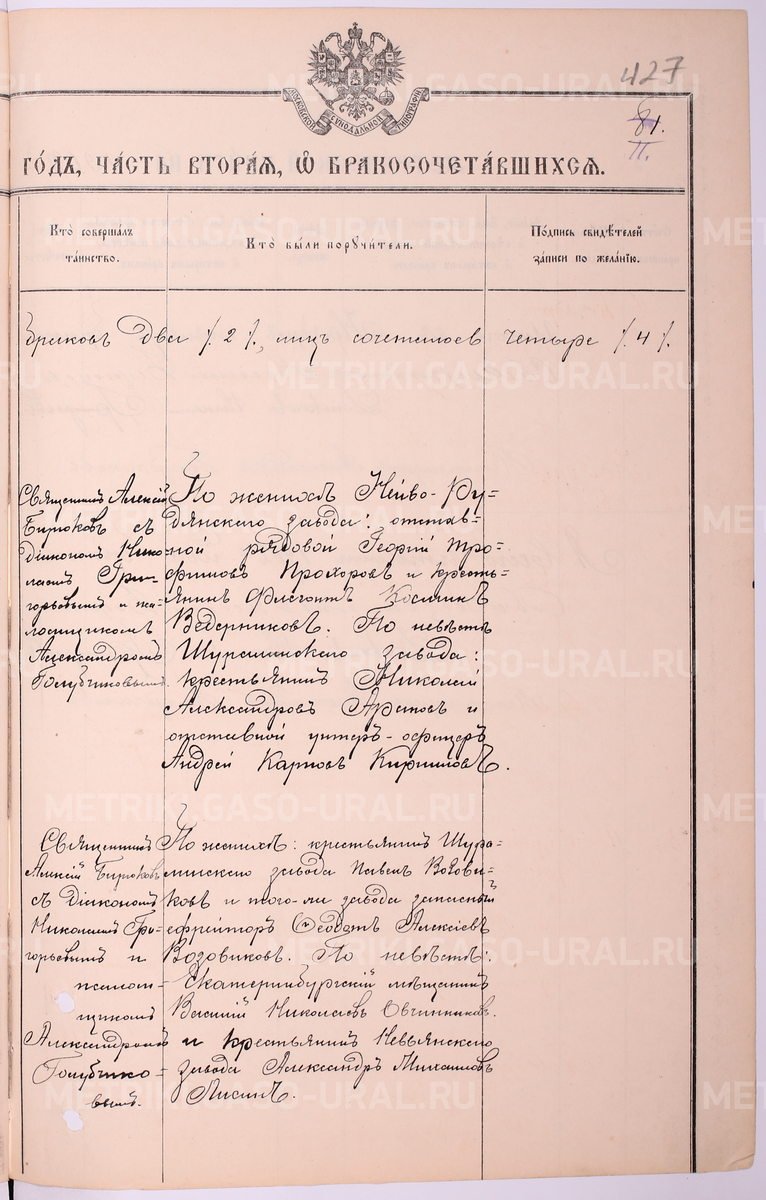 427
81.
II.
МОСКОВСКОЙ СѴНОДАЛЬНОЙ ТИПОГРАФІИ
ГОДЪ, ЧАСТЬ ВТОРАЯ, Ѡ БРАКОСОЧЕТАВШИХСЯ.
Кто совершалъ
таинство.
Кто были поручители.
Подпись свидѣтелей
записи по желанію.
Браковъ два /.2/., лицъ сочеталось четыре /.4/.
Священникъ Алексій
Бирюковъ съ
Діакономъ Нико-
лаемъ Гри-
горьевымъ и пса-
ломщикомъ
Александромъ
Голубчиковымъ.
По женихѣ Нейво-Ру-
дянскаго завода: отстав-
ной рядовой Георгій Тро-
фимовъ Прохоровъ и кресть-
янинъ Флегонтъ Косминъ
Ведерниковъ. По невѣстѣ
Шуралинскаго завода:
крестьянинъ Николай
Александровъ Арапов и
отставной унтеръ-офицеръ
Андрей Карповъ Кириловъ.
Священникъ
Алексій Бирюковъ
съ Діакономъ
Николаемъ Гри-
горьевымъ и
псалом-
щикомъ
Александромъ
Голубчико-
вымъ.
По женихѣ: крестьянинъ Шура-
линскаго завода Павелъ Возови-
ковъ и того-ли завода запасный
ефрейторъ Ѳедотъ Алексѣевъ
Возовиковъ. По невѣстѣ:
Екатеринбургскій мѣщанинъ
Василій Николаевъ Овчинниковъ.
и крестьянинъ Невьянскаго
завода Александръ Михаиловъ
Лисинъ.
METRIKI.GASO-URAL.RU